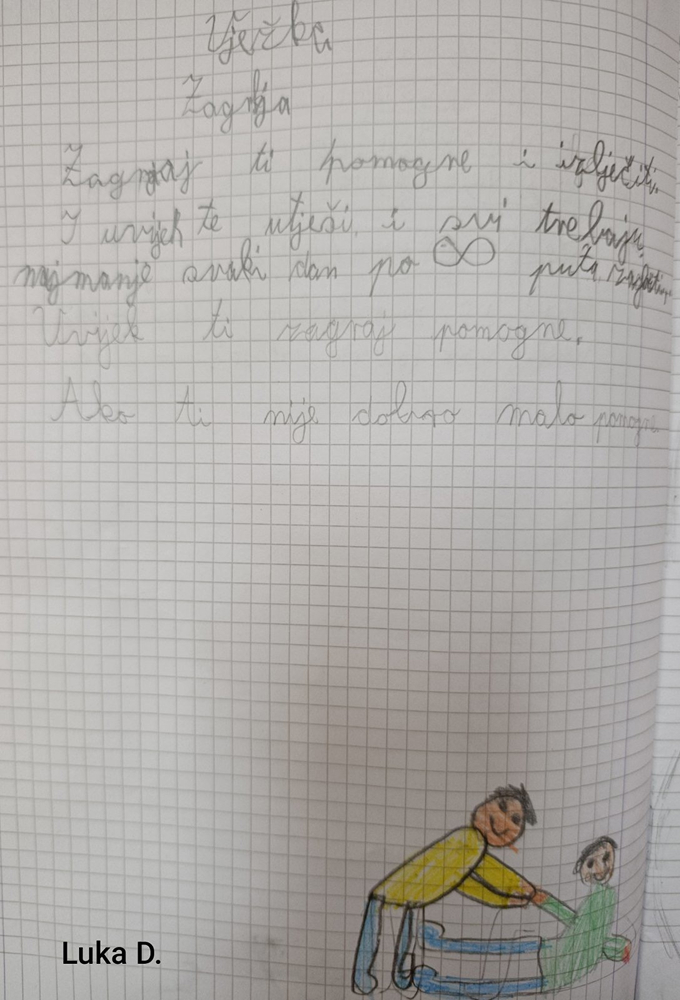 Vježba
Zagrlja
Zagrljaj ti pomogne i izlječiti.
I uvijek te utješi i svi trebaju
najmanje svaki dan po ∞ puta
Uvijek ti zagraj pomogne.
Ako ti nije dobro malo pomogne
Luka D.